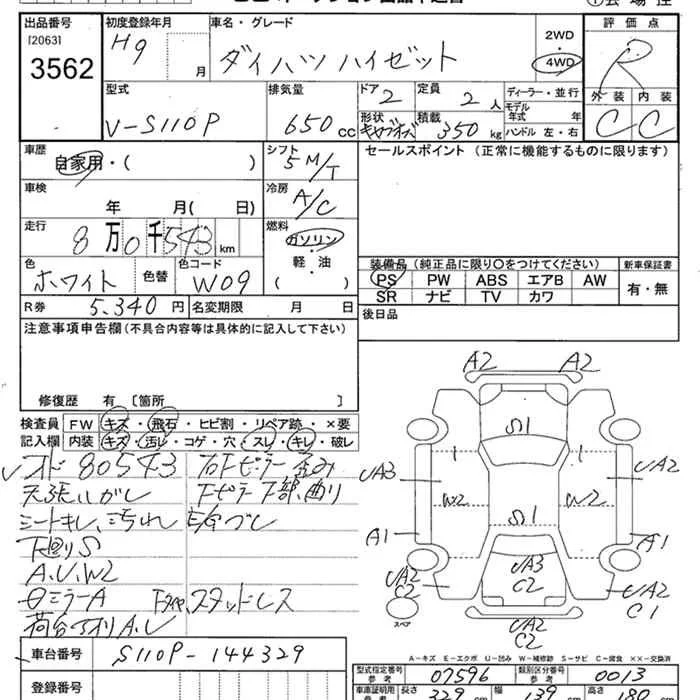 出品番号
[2063]
3562
初度登録年月
H9 月
車名・グレード
ダイハツ ハイゼット
2WD
・
4WD
評価点
R
外装 内装
C C
型式
V-S110P
排気量
650 cc
ドア 2
定員 2 人
形状
積載 350 kg
ディーラー・並行
モデル年式 年
ハンドル 左・右
車歴
自家用・( )
シフト
5 M/T
セールスポイント (正常に機能するものに限ります)
車検
年 月( 日)
冷房
A/C
走行
8万0千543 km
燃料
ガソリン
・
軽油
・
( )
色
ホワイト
色替
色コード
W09
装備品 (純正品に限り○をつけてください)
PS PW ABS エアB AW
SR ナビ TV カワ
新車保証書
有・無
R券 5,340 円
名変期限 月 日
後日品
注意事項申告欄 (不具合内容等は具体的に記入して下さい)
修復歴 有 〔箇所 〕
検査員記入欄
FW キズ・飛石・ヒビ割・リペア跡・×要
内装 キズ・汚レ・コゲ・穴・スレ・キレ・破レ
メド 80543
天張りはがし
シートキレ、汚れ
下廻りS
A.U.W2
ミラーA
スタッドレス
A2 A2
S1
UA3 UA2
W2 W2
S1
A1 A1
UA3
C2
UA2
C2
UA2
C1
UA2
C2
スペア
A-キズ E-エクボ U-凹み W-補修跡 S-サビ C-腐食 ××-交換済
車台番号
S110P-144329
登録番号
型式指定番号
参考
07596
類別区分番号
参考
0013
車庫証明用
参考
長さ 329 cm
幅 139 cm
高さ 180 cm